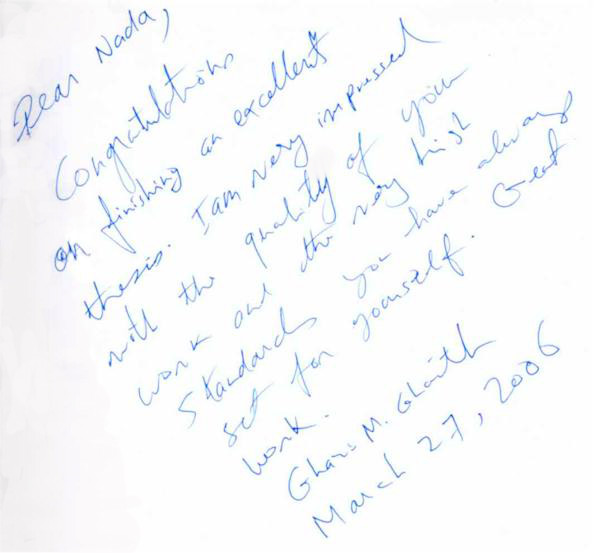 Dear Nada,
Congratulations
on finishing an excellent
thesis. I am very impressed
with the quality of your
work and the very high
standards you have always
set for yourself. Great
work.
Ghazi M. Ghaith
March 27, 2006